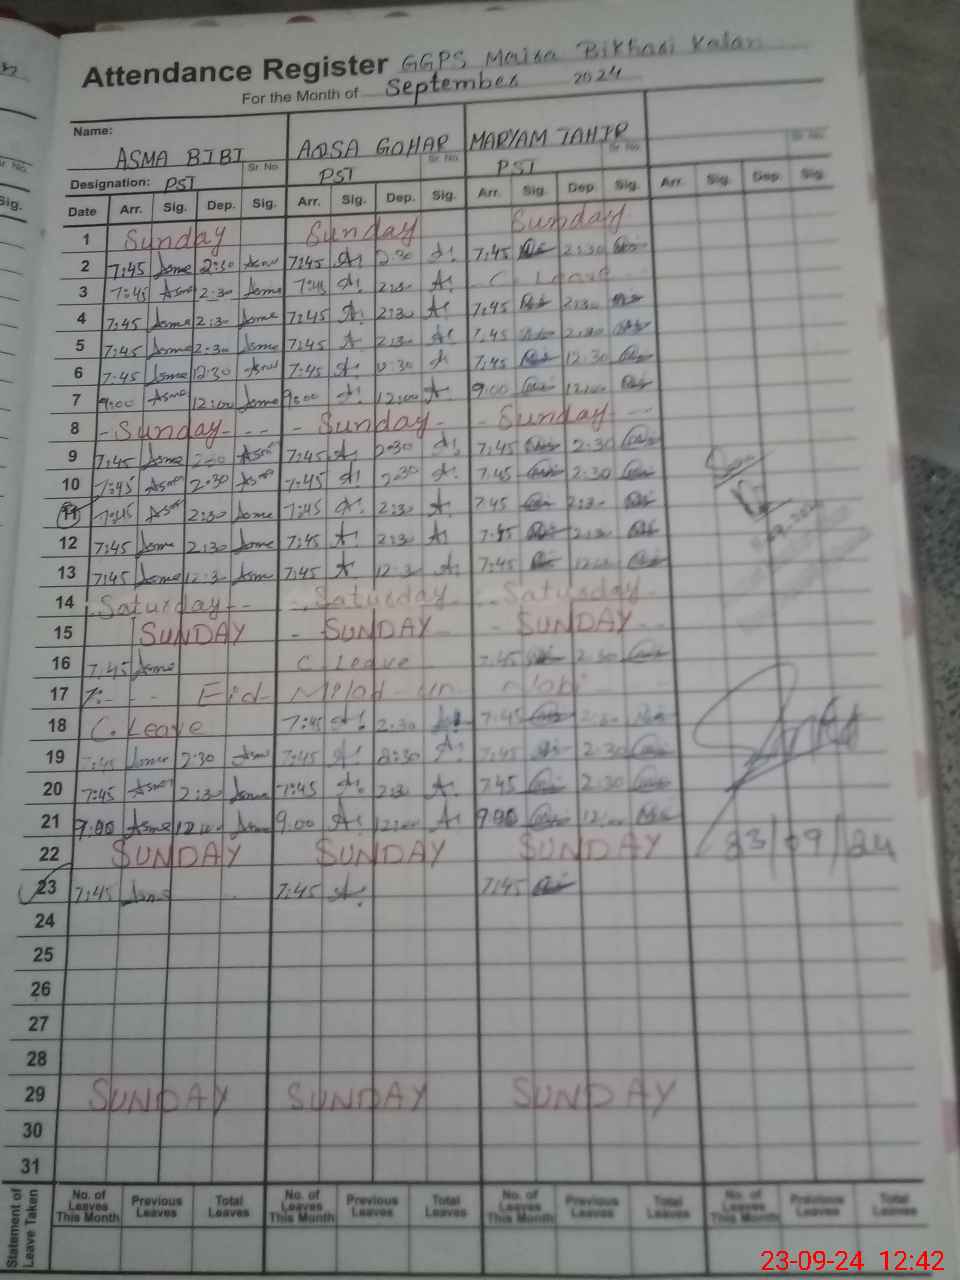 Attendance Register GGPS Maisa Bikhari Kalan
For the Month of September 2024
Name: ASMA BIBI Sr No AQSA GOHAR Sr No MARYAM TAHIR Sr No Sr No
Designation: PST PST PST
Date Arr. Sig. Dep. Sig. Arr. Sig. Dep. Sig. Arr. Sig. Dep. Sig. Arr. Sig. Dep. Sig.
1 Sunday Sunday Sunday
2 7:45 Asma 2:30 Asma 7:45 A! 2:30 A! 7:45 2:30
3 7:45 Asma 2:30 Asma 7:45 A! 2:30 A! C Leave
4 7:45 Asma 2:30 Asma 7:45 A! 2:30 A! 7:45 2:30
5 7:45 Asma 2:30 Asma 7:45 A 2:30 A! 7:45 2:30
6 7:45 Asma 12:30 Asma 7:45 A! 12:30 A! 7:45 12:30
7 9:00 Asma 12:00 Asma 9:00 A! 12:00 A! 9:00 12:00
8 - Sunday - - - - Sunday - - Sunday - -
9 7:45 Asma 2:30 Asma 7:45 A! 2:30 A! 7:45 2:30
10 7:45 Asma 2:30 Asma 7:45 A! 2:30 A! 7:45 2:30
11 7:45 Asma 2:30 Asma 7:45 A! 2:30 A! 7:45 2:30
12 7:45 Asma 2:30 Asma 7:45 A! 2:30 A! 7:45 2:30
13 7:45 Asma 12:30 Asma 7:45 A 12:30 A! 7:45
14 Saturday - - Saturday - Saturday -
15 SUNDAY - SUNDAY - SUNDAY
16 7:45 Asma C Leave 7:45 2:30
17 Eid Milad un nabi
18 C. Leave 7:45 A! 2:30 7:45 2:30
19 7:45 Asma 2:30 Asma 7:45 A! 2:30 A! 7:45 2:30
20 7:45 Asma 2:30 Asma 7:45 A! 2:30 A! 7:45 2:30
21 9:00 Asma 12:00 Asma 9:00 A! 12:00 A! 9:00 12:00
22 SUNDAY SUNDAY SUNDAY 23/09/24
23 7:45 Asma 7:45 A! 7:45
24
25
26
27
28
29 SUNDAY SUNDAY SUNDAY
30
31
Statement of Leave Taken
No. of Leaves This Month Previous Leaves Total Leaves No. of Leaves This Month Previous Leaves Total Leaves No. of Leaves This Month Previous Leaves Total Leaves No. of Leaves This Month Previous Leaves Total Leaves
23-09-24 12:42